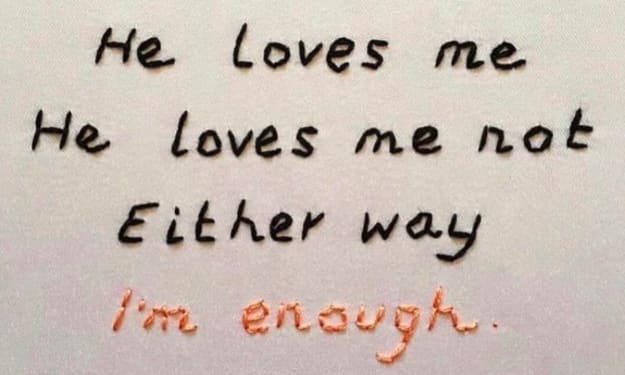 He loves me
He loves me not
Either way
I'm enough.